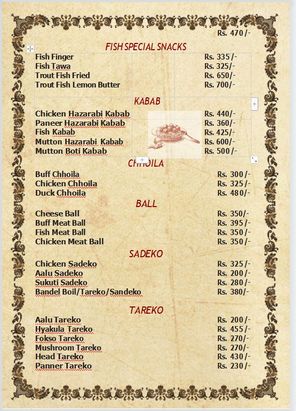 Rs. 470/-
FISH SPECIAL SNACKS
Fish Finger Rs. 335/-
Fish Tawa Rs. 325/-
Trout Fish Fried Rs. 650/-
Trout Fish Lemon Butter Rs. 700/-
KABAB
Chicken Hazarabi Kabab Rs. 440/-
Paneer Hazarabi Kabab Rs. 360/-
Fish Kabab Rs. 425/-
Mutton Hazarabi Kabab Rs. 600/-
Mutton Boti Kabab Rs. 500/-
CHHOILA
Buff Chhoila Rs. 300/-
Chicken Chhoila Rs. 325/-
Duck Chhoila Rs. 480/-
BALL
Cheese Ball Rs. 350/-
Buff Meat Ball Rs. 395/-
Fish Meat Ball Rs. 350/-
Chicken Meat Ball Rs. 350/-
SADEKO
Chicken Sadeko Rs. 325/-
Aalu Sadeko Rs. 200/-
Sukuti Sadeko Rs. 280/-
Bandel Boil/Tareko/Sandeko Rs. 380/-
TAREKO
Aalu Tareko Rs. 200/-
Hyakula Tareko Rs. 455/-
Fokso Tareko Rs. 270/-
Mushroom Tareko Rs. 270/-
Head Tareko Rs. 430/-
Panner Tareko Rs. 230/-